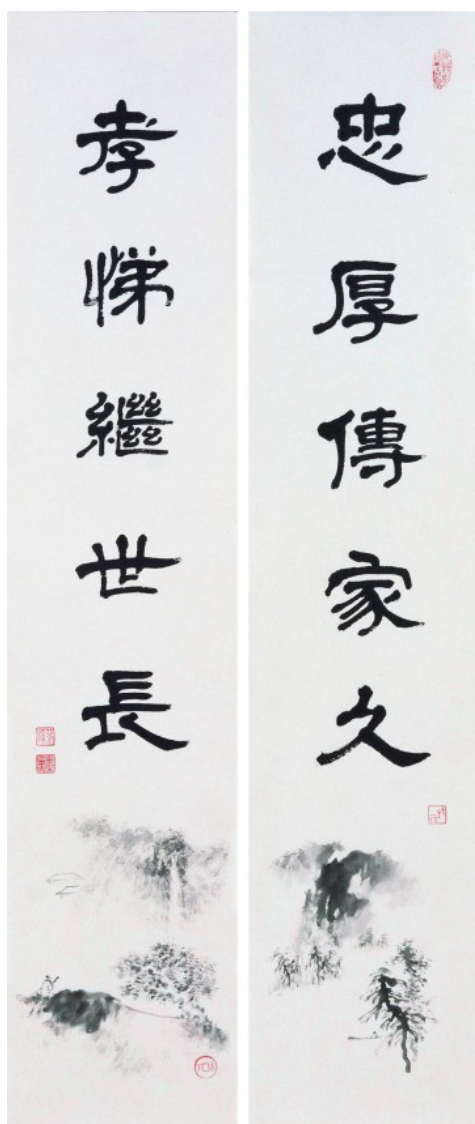 忠厚傳家久
孝悌繼世長